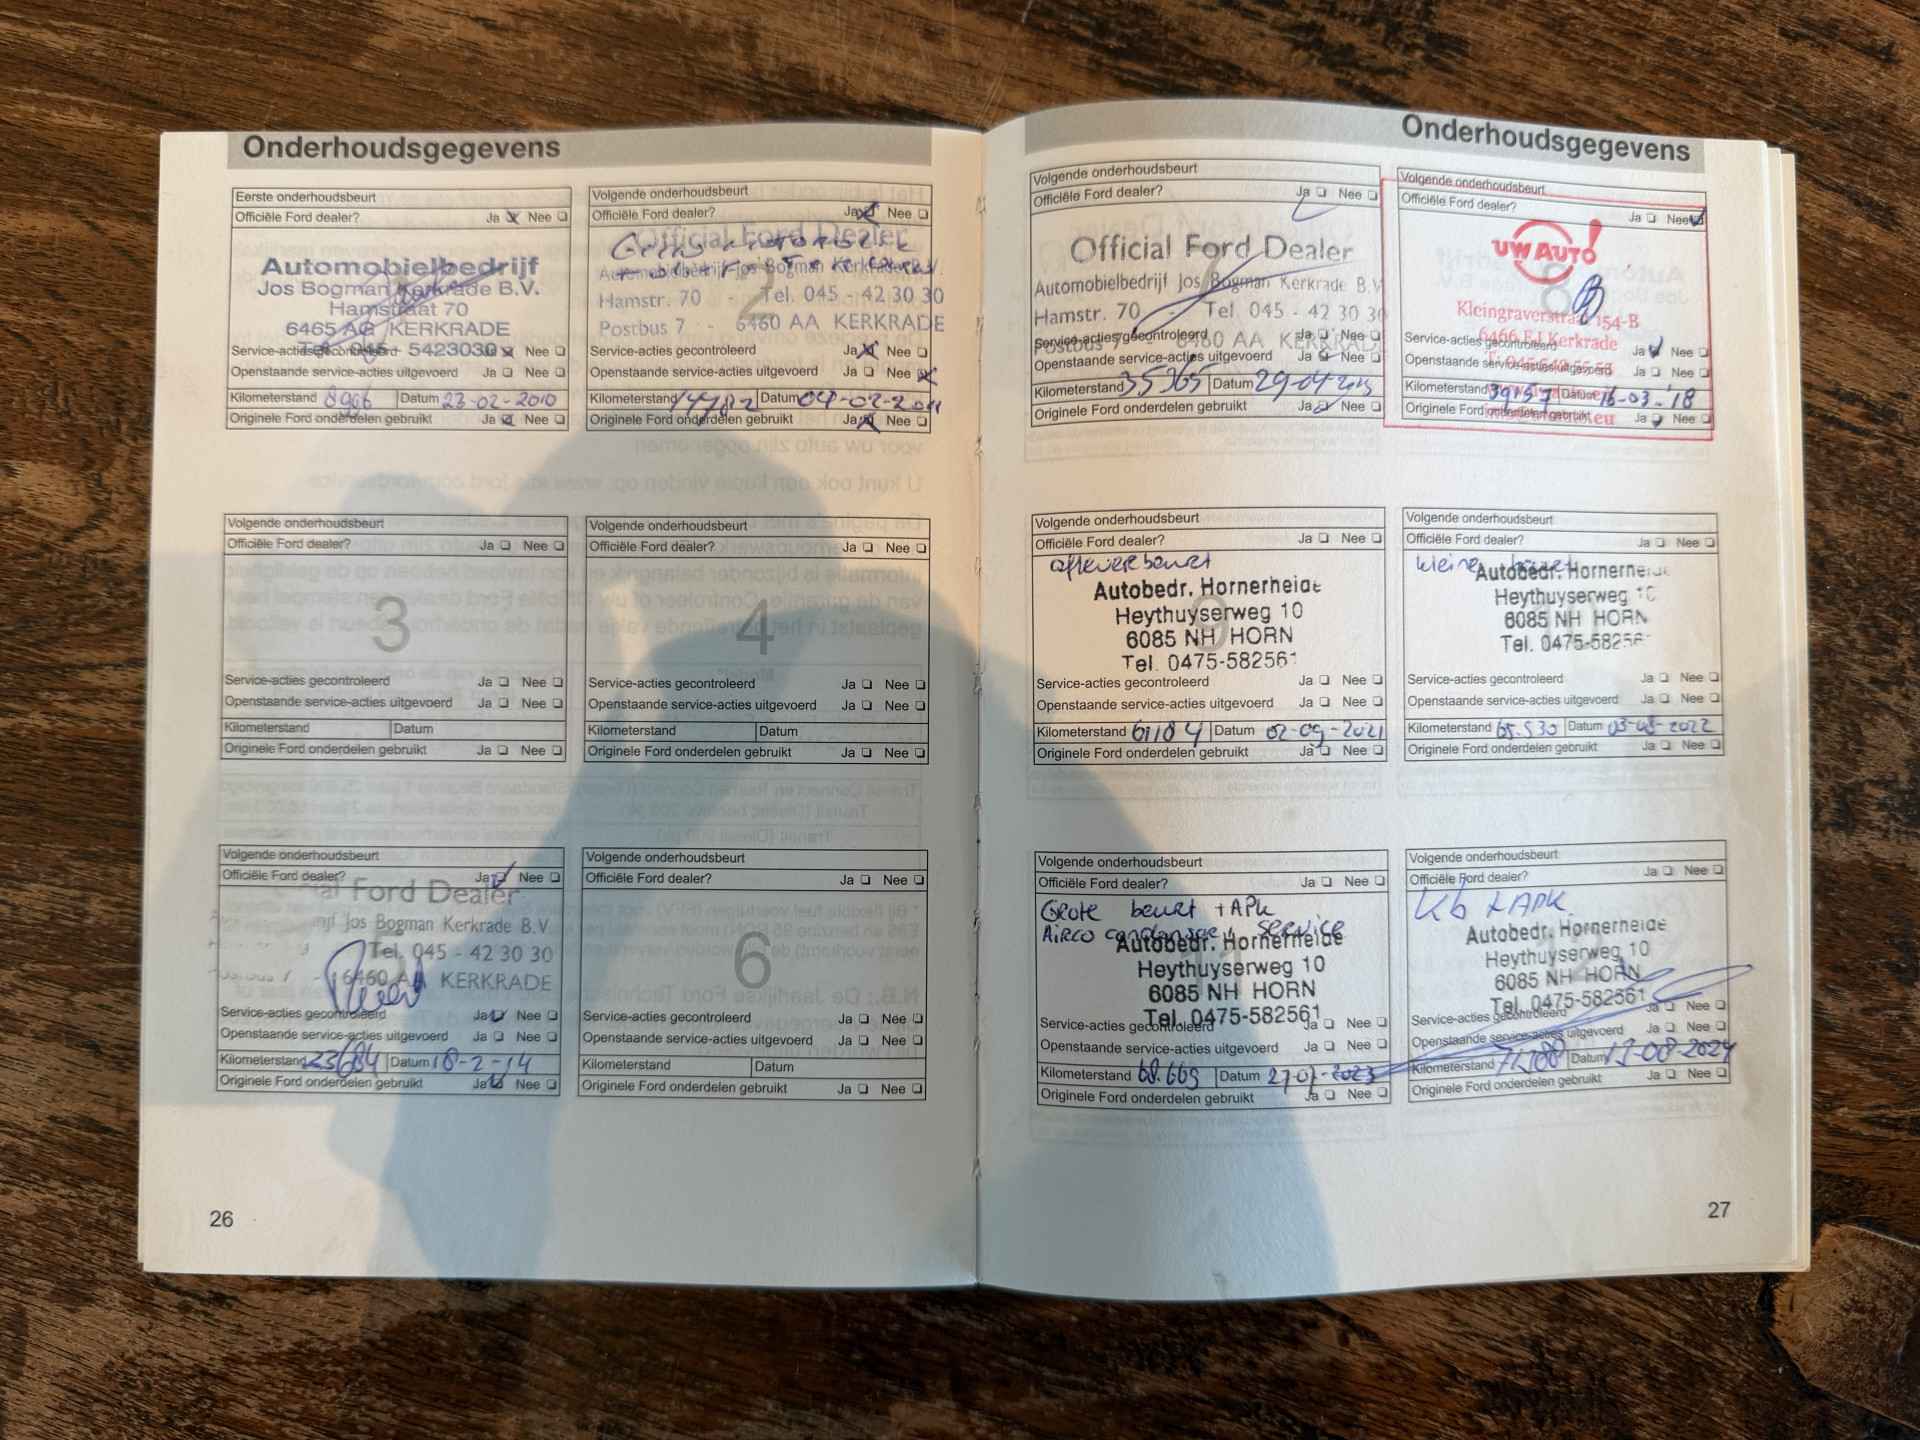 Onderhoudsgegevens
Eerste onderhoudsbeurt
Officiële Ford dealer? Ja Nee
Automobielbedrijf
Jos Bogman Kerkrade B.V.
Hamstraat 70
6465 AG KERKRADE
Tel. 045 - 5423030
Service-acties gecontroleerd Ja Nee
Openstaande service-acties uitgevoerd Ja Nee
Kilometerstand 8996 Datum 23-02-2010
Originele Ford onderdelen gebruikt Ja Nee
Volgende onderhoudsbeurt
Officiële Ford dealer? Ja Nee
Official Ford Dealer
Automobielbedrijf Jos Bogman Kerkrade B.V.
Hamstr. 70 - Tel. 045 - 42 30 30
2
Postbus 7 - 6460 AA KERKRADE
Service-acties gecontroleerd Ja Nee
Openstaande service-acties uitgevoerd Ja Nee
Kilometerstand 14782 Datum 04-02-2011
Originele Ford onderdelen gebruikt Ja Nee
Volgende onderhoudsbeurt
Officiële Ford dealer? Ja Nee
3
Service-acties gecontroleerd Ja Nee
Openstaande service-acties uitgevoerd Ja Nee
Kilometerstand Datum
Originele Ford onderdelen gebruikt Ja Nee
Volgende onderhoudsbeurt
Officiële Ford dealer? Ja Nee
4
Service-acties gecontroleerd Ja Nee
Openstaande service-acties uitgevoerd Ja Nee
Kilometerstand Datum
Originele Ford onderdelen gebruikt Ja Nee
Volgende onderhoudsbeurt
Officiële Ford dealer? Ja Nee
Ford Dealer
Jos Bogman Kerkrade B.V.
Tel. 045 - 42 30 30
6460 AA KERKRADE
Service-acties gecontroleerd Ja Nee
Openstaande service-acties uitgevoerd Ja Nee
Kilometerstand 23684 Datum 18-2-14
Originele Ford onderdelen gebruikt Ja Nee
Volgende onderhoudsbeurt
Officiële Ford dealer? Ja Nee
6
Service-acties gecontroleerd Ja Nee
Openstaande service-acties uitgevoerd Ja Nee
Kilometerstand Datum
Originele Ford onderdelen gebruikt Ja Nee
26
Onderhoudsgegevens
Volgende onderhoudsbeurt
Officiële Ford dealer? Ja Nee
Official Ford Dealer
Automobielbedrijf Jos Bogman Kerkrade B.V.
Hamstr. 70 - Tel. 045 - 42 30 30
Postbus 7 6460 AA KERKRADE
Service-acties gecontroleerd Ja Nee
Openstaande service-acties uitgevoerd Ja Nee
Kilometerstand 35365 Datum 29-04-2015
Originele Ford onderdelen gebruikt Ja Nee
Volgende onderhoudsbeurt
Officiële Ford dealer? Ja Nee
UW AUTO!
8
Kleingraverstraat 154-B
6466 EJ Kerkrade
Service-acties gecontroleerd Ja Nee
Openstaande service-acties uitgevoerd Ja Nee
Kilometerstand Datum 16-03-'18
Originele Ford onderdelen gebruikt Ja Nee
Volgende onderhoudsbeurt
Officiële Ford dealer? Ja Nee
afleverbeurt
Autobedr. Hornerheide
Heythuyserweg 10
9
6085 NH HORN
Tel. 0475-582561
Service-acties gecontroleerd Ja Nee
Openstaande service-acties uitgevoerd Ja Nee
Kilometerstand 61184 Datum 02-09-2021
Originele Ford onderdelen gebruikt Ja Nee
Volgende onderhoudsbeurt
Officiële Ford dealer? Ja Nee
kleine beurt
Autobedr. Hornerheide
Heythuyserweg 10
6085 NH HORN
Tel. 0475-58256
Service-acties gecontroleerd Ja Nee
Openstaande service-acties uitgevoerd Ja Nee
Kilometerstand 65.530 Datum 03-08-2022
Originele Ford onderdelen gebruikt Ja Nee
Volgende onderhoudsbeurt
Officiële Ford dealer? Ja Nee
Grote beurt + APK
Airco condensor + service
Autobedr. Hornerheide
Heythuyserweg 10
11
6085 NH HORN
Tel. 0475-582561
Service-acties gecontroleerd Ja Nee
Openstaande service-acties uitgevoerd Ja Nee
Kilometerstand 68.669 Datum 27-07-2023
Originele Ford onderdelen gebruikt Ja Nee
Volgende onderhoudsbeurt
Officiële Ford dealer? Ja Nee
Kb + APK
Autobedr. Hornerheide
Heythuyserweg 10
6085 NH HORN
Tel. 0475-582561
Service-acties gecontroleerd Ja Nee
Openstaande service-acties uitgevoerd Ja Nee
Kilometerstand Datum 13-08-2024
Originele Ford onderdelen gebruikt Ja Nee
27